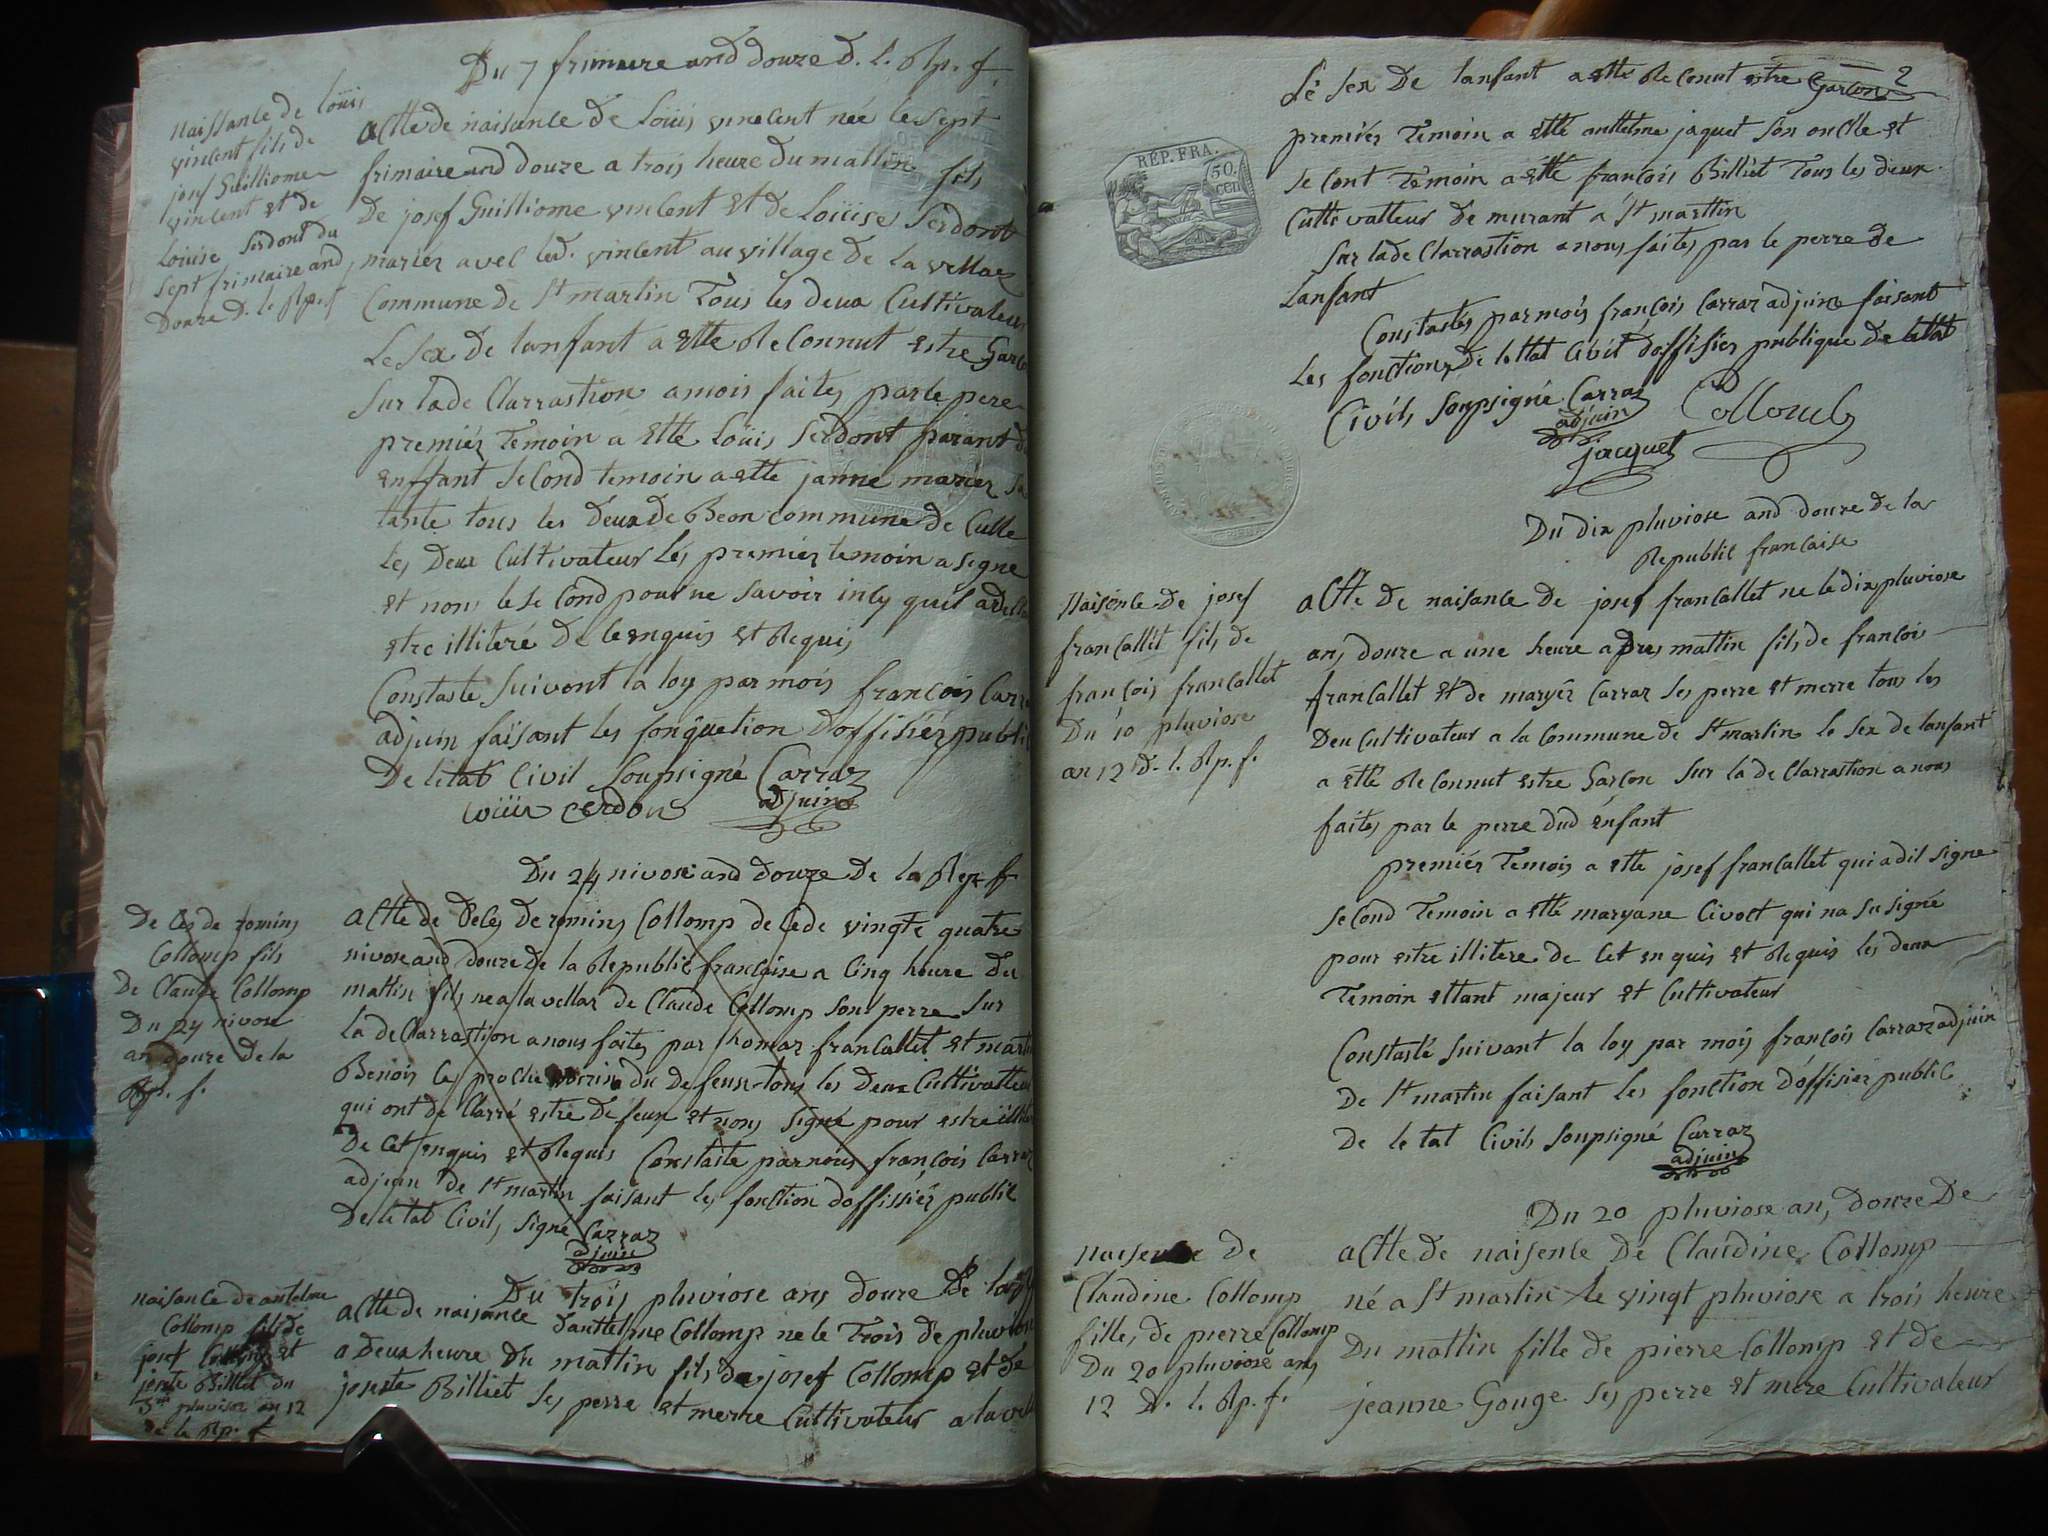 Du 7 frimaire and douze D. l. Rp. f.
naissance de loüis
vincent fils de
josef Guilliome
vincent et de
Louise Serdont du
sept frimaire and
Douze D. le Rp. f
actte de naisance de Loüis vincent née le sept
frimaire and douze a trois heure du mattin fils
De josef Guilliome vincent et de Loüise Serdont
mariér avec led. vincent au village de la vellaz
Commune de St martin Tous les deux Cultivateur
Le sex de lanfant a ette Reconnut estre Garco
sur lade Clarrastion a mois faites par le pere
premiér Temoin a ette Loüis Serdont parant d
enffant second temoin a ette janne marier sa
tante tous les deux de Beon commune de Culle
les Deux Cultivateur les premier temoin a signe
et nons le se Cond pour ne savoir incy quil a
estre illiteré De lenquis et Requis
Constaste suivent la loy par mois françois Carra
adjuin faisant les fonquetion Doffisiér public
De letat Civil Soupsigné Carraz
adjuin
loüis cerdon
Du 24 nivose and douze De la Rep. fr
De ces de romins
Collomp fils
De Claude Collomp
Du 24 nivose
an douze De la
Rp. f.
actte de Deces de romins Collomp de cede vingte quatre
nivose and douze de la Republic françaisse a cinq heure Du
mattin fils ne a la vellaz de Claude Collomp son perre sur
la de Clarrastion a nous faites par thomaz francallet et marti
Benois les proche voisin du defeunt tous les deux Cultivatteur
qui ont de Clarré estre De feunt et nons signé pour estre illite
De Cet enquis et Requis Constaste par nous françois Carraz
adjuin de St martin faisant les fonction doffissiér public
De letat Civils signé Carraz
adjuin
Du trois pluviose ans douze De la Rp f
naisance de antelme
Collomp fils de
josef Collomp et
josete Billiet du
3me pluviose an 12
de le Rp. f
actte de naisance Danttelme Collomp ne le Trois de pluviose
a Deux heure Du mattin fils de josef Collomp et de
joseste Billiet ses perre et merre Cultivateur a la vel
2
Le sex De lanfant a ette Reconut estre Garcon
premiér Temoin a etté anttelme jaquet son onclle et
se Cont Temoin a etté françois Billiet Tous les deux
Cultivatteur de murant a St marttin
sur lade Clarrastion a nous faites par le perre de
Lanfant
Constastés par mois françois Carraz adjuin faisant
les fonction De lettat Civil doffisier publique de letat
Civils soupsigné Carraz
adjuin
Collomb
jacquet
REP. FRA.
50.
cen
Du dix pluviose and douze de la
Republic francaise
Naisence De josef
francallet fils de
françois francallet
Du 10 pluviose
an 12 D. l. Rp. f.
actte De naisance De josef francallet ne le dix pluviose
ans douze a une heure apres mattin fils de francois
francallet et de maryér Carraz ses perre et merre tous les
Deu Cultivateur a la Commune de St martin le sex de lanfant
a etté Reconnut estre Garcon sur la de Clarrastion a nous
faites par le perre dud énfant
premiér Temois a ette josef francallet qui a dit signe
second Temoin a etté maryane Civoct qui na su signé
pour estre illitere de Cet enquis et Requis les deux
Temoin ettant majeur et Cultivateur
Constasté suivant la loy par mois françois Carraz adjuin
De St martin faisant les fonction d'offisiér public
De le tat Civils soupsigné Carraz
adjuin
Du 20 pluviose ans douze De
naisence De
Claudine Collomp
fille de pierre Collomp
Du 20 pluviose ans
12 D. l. Rp. f.
actte de naisence De Claudine Collomp
né a St martin le vingt pluviose a trois heure
Du mattin fille de pierre Collomp et de
jeanne Gonge ses perre et mere Cultivateur